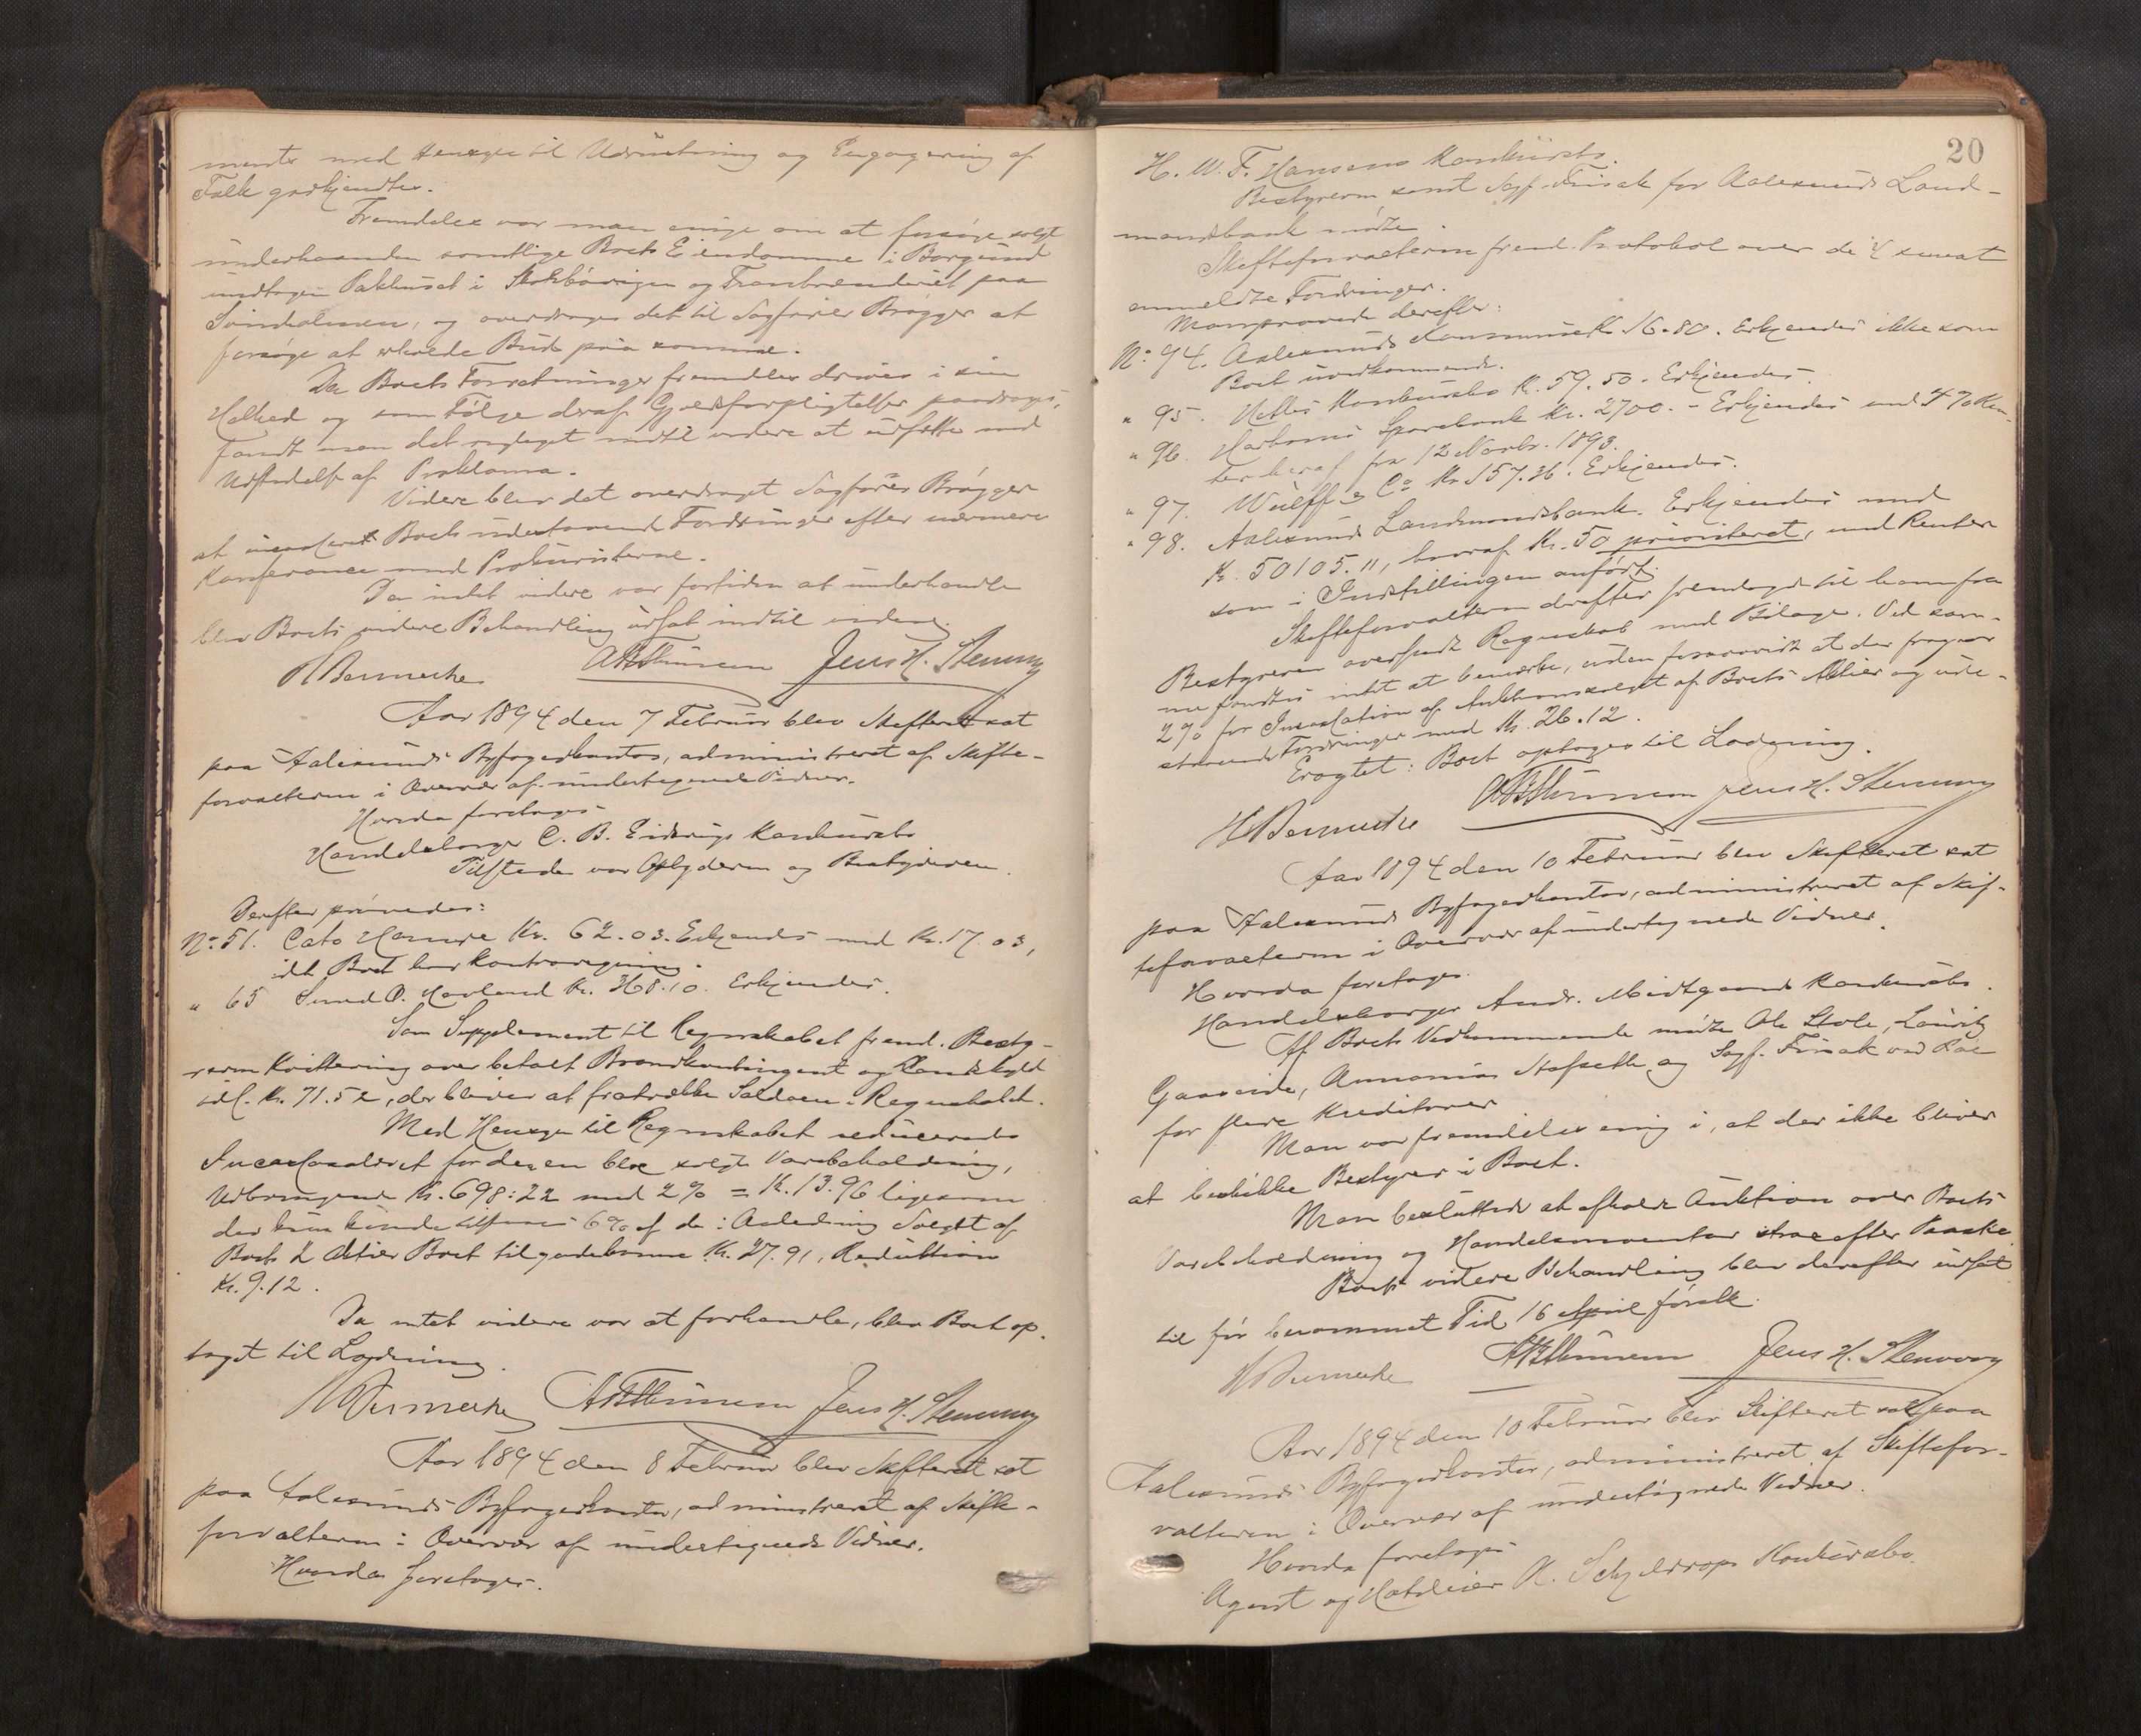 ments med Hensyn til Udrustning og Engagering af
Folk godkjendtes.
Fremdeles var man enige om at forsøge solgt
underhaanden samtlige Boets Eiendomme i Borgund
undtagen Pakhuset i og Tranbrænderiet paa
og overdroges det til Sagfører Brøgger at
forsøge at erholde Bud paa samme.
Da Boets Forretninger fremdeles drives i sin
Helhed og som Følge deraf Gjældsforpligtelser paadrages,
fandt man det indtil videre at udsætte med
Udstedelse af Proklama.
Videre blev det overdraget Sagfører Brøgger
at incassere Boets udestaaende Fordringer efter nærmere
Konferance med Prokuristerne.
Da intet videre var fortiden at underhandle
blev Boets videre Behandling udsat indtil videre.
Jens H. Stenvaag
Aar 1894 den 7 Februar blev Skifteret sat
paa Aalesunds Byfogedkontor, administreret af Skifte-
forvalteren i Overvær af undertegnede Vidner.
Hvorda foretoges
Handelsborger C. B. Konkursbo
Tilstede var Opbyderen og Bestyreren.
Derefter prøvedes:
No. 51. Cato Kr. 62.03. Erkjendes med Kr. 17.03,
idet Boet har Kontraregning.
" 65 O. Kr. 368.10. Erkjendes.
Som Supplement til Regnskabet freml. Besty-
reren Kvittering over betalt Brandkontingent og
idl. Kr. 71.52, der bliver at fratrække Saldoen i Regnskabet.
Med Hensyn til Regnskabet reduceredes
Incassosalæret for den en bloc solgte Varebeholdning,
Udbringende Kr. 698:22 med 2% = Kr. 13.96 ligesom
der kun kunde tilstaaes 6% af de i Anledning Salget af
Boets 2 Aktier Boet tilgodekomne Kr. 27.91, Reduktion
Kr. 9.12.
Da intet videre var at forhandle, blev Boet op-
taget til Lodning.
Jens H. Stenvaag
Aar 1894 den 8 Februar blev Skifteret sat
paa Aalesunds Byfogedkontor, administreret af Skifte-
forvalteren i Overvær af undertegnede Vidner.
Hvorda foretoges.
20
H. W. F. Hansens Konkursbo.
Bestyreren samt Sagf. Finsak for Aalesunds Land-
mandsbank mødte.
Skifteforvalteren freml. Protokol over de senest
anmeldte Fordringer.
Man prøvede derefter:
No. 94. Aalesunds Kommune Kr. 16.80. Erkjendes ikke som
Boet uvedkommende.
" 95. Konkursbo Kr. 59.50. Erkjendes.
" 96. Sparebank Kr. 2700.- Erkjendes med Ren-
ter heraf fra 12 Novbr. 1893.
" 97. Wulff & Co Kr. 157.36. Erkjendes.
" 98. Aalesunds Landmandsbank. Erkjendes med
Kr. 50105.11, hvoraf Kr. 50 prioriteret, med Renter
som i Indstillingen anført.
Skifteforvalteren derefter fremlagde til ham fra
Bestyreren oversendt Regnskab med Bilage. Ved sam-
me fandtes intet at bemærke, uden forsaavidt at der fragaar
2% for Incassation af Auktionssalget af Boets Aktier og ude-
staaende Fordringer med Kr. 26.12.
Eragtet: Boet optages til Lodning.
Jens H. Stenvaag
Aar 1894 den 10 Februar blev Skifteret sat
paa Aalesunds Byfogedkontor, administreret af Skif-
teforvalteren i Overvær af undertegnede Vidner.
Hvorda foretoges.
Handelsborger Andr. Midtgaards Konkursbo.
Af Boets Vedkommende mødte Ole Lauritz
og Sagf. Finsak
for flere Kreditorer
Man var fremdeles enig i, at der ikke bliver
at beskikke Bestyrer i Boet.
Man besluttede at afholde Auktion over Boets
Varebeholdning og Handelsinventar strax efter Paaske.
Boets videre Behandling blev derefter udsat
til før berammet Tid 16 April førstk.
Jens H. Stenvaag
Aar 1894 den 10 Februar blev Skifteret sat paa
Aalesunds Byfogedkontor, administreret af Skiftefor-
valteren i Overvær af undertegnede Vidner.
Hvorda foretoges
Agent og K. Schjelderups Konkursbo.